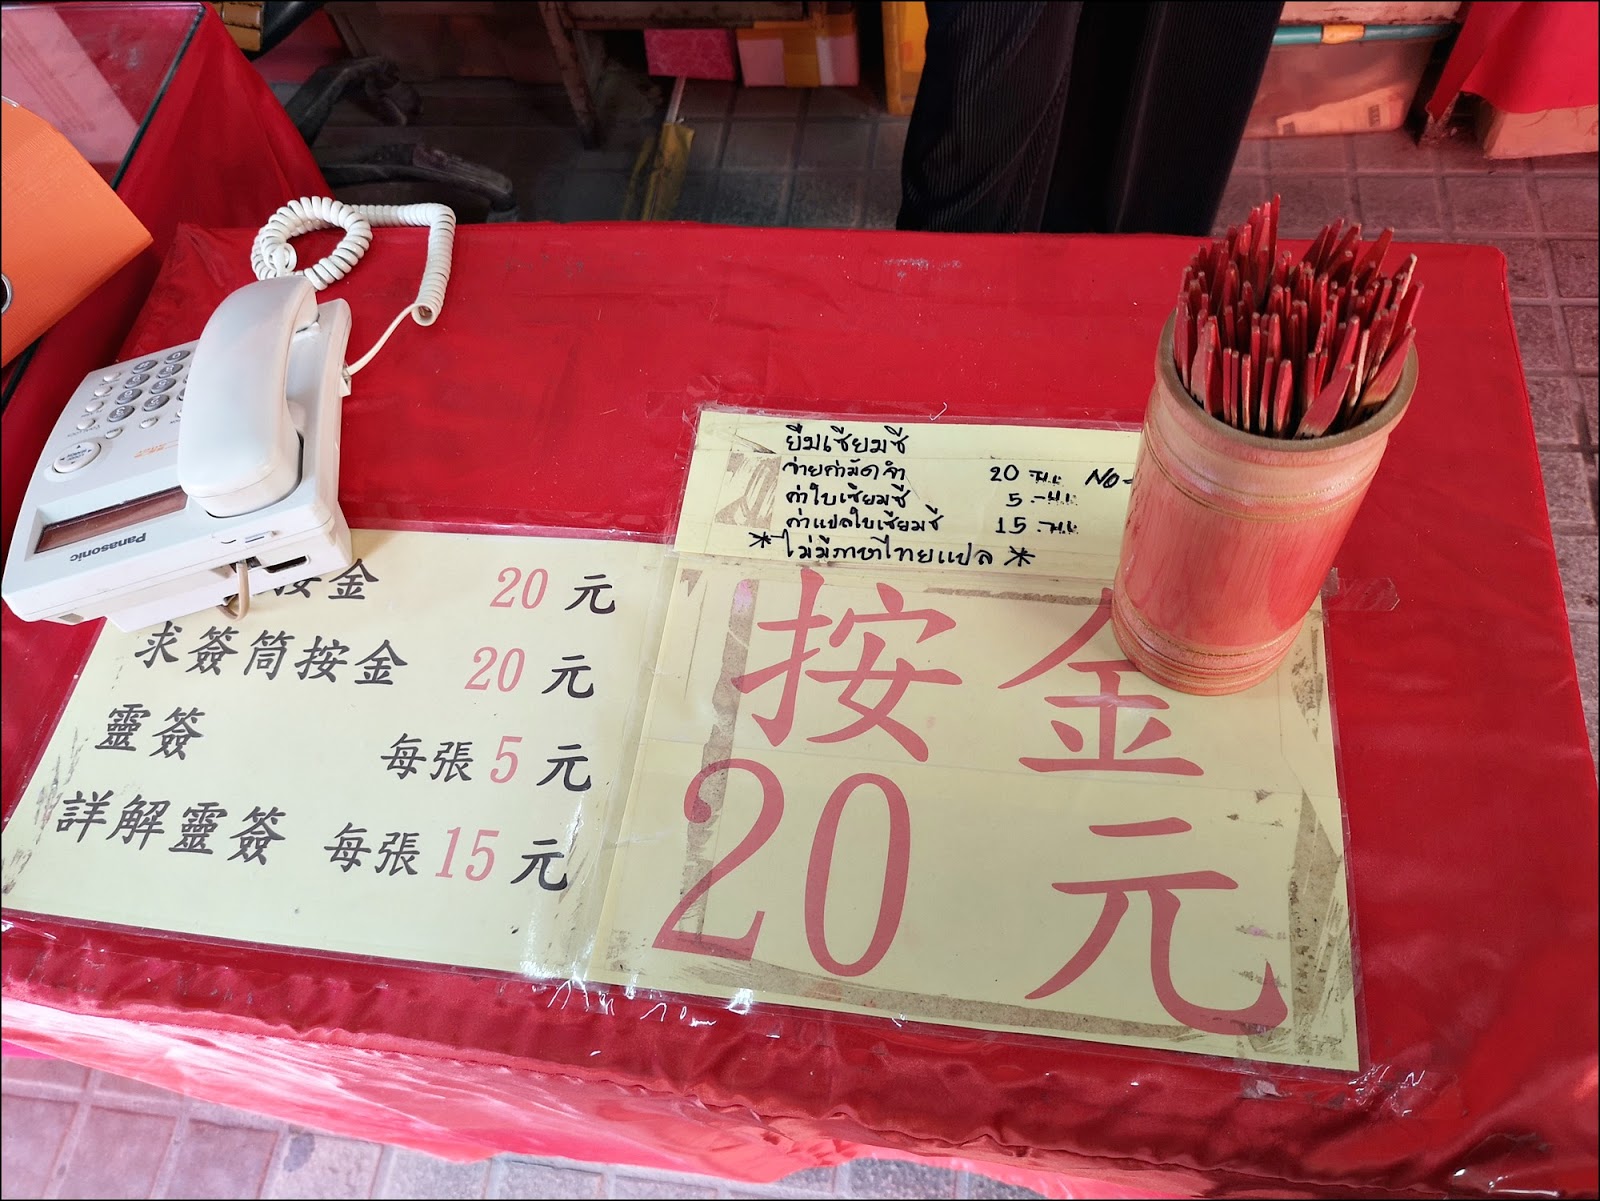 Panasonic
ยืมเซียมซี
จ่ายค่ามัดจำ 20 No-
ค่าใบเซียมซี 5
ค่าแปลใบเซียมซี 15
* ไม่มีภาษาไทยแปล *
按金 20 元
求簽筒按金 20 元
靈簽 每張 5 元
詳解靈簽 每張 15 元
按金
20 元